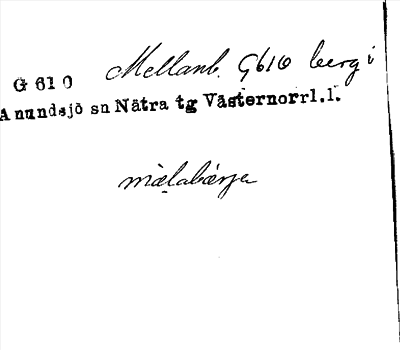 G 610 Mellanb. G610 berg i
Anundsjö sn Nätra tg Västernorrl.l.
mälabärjɐ